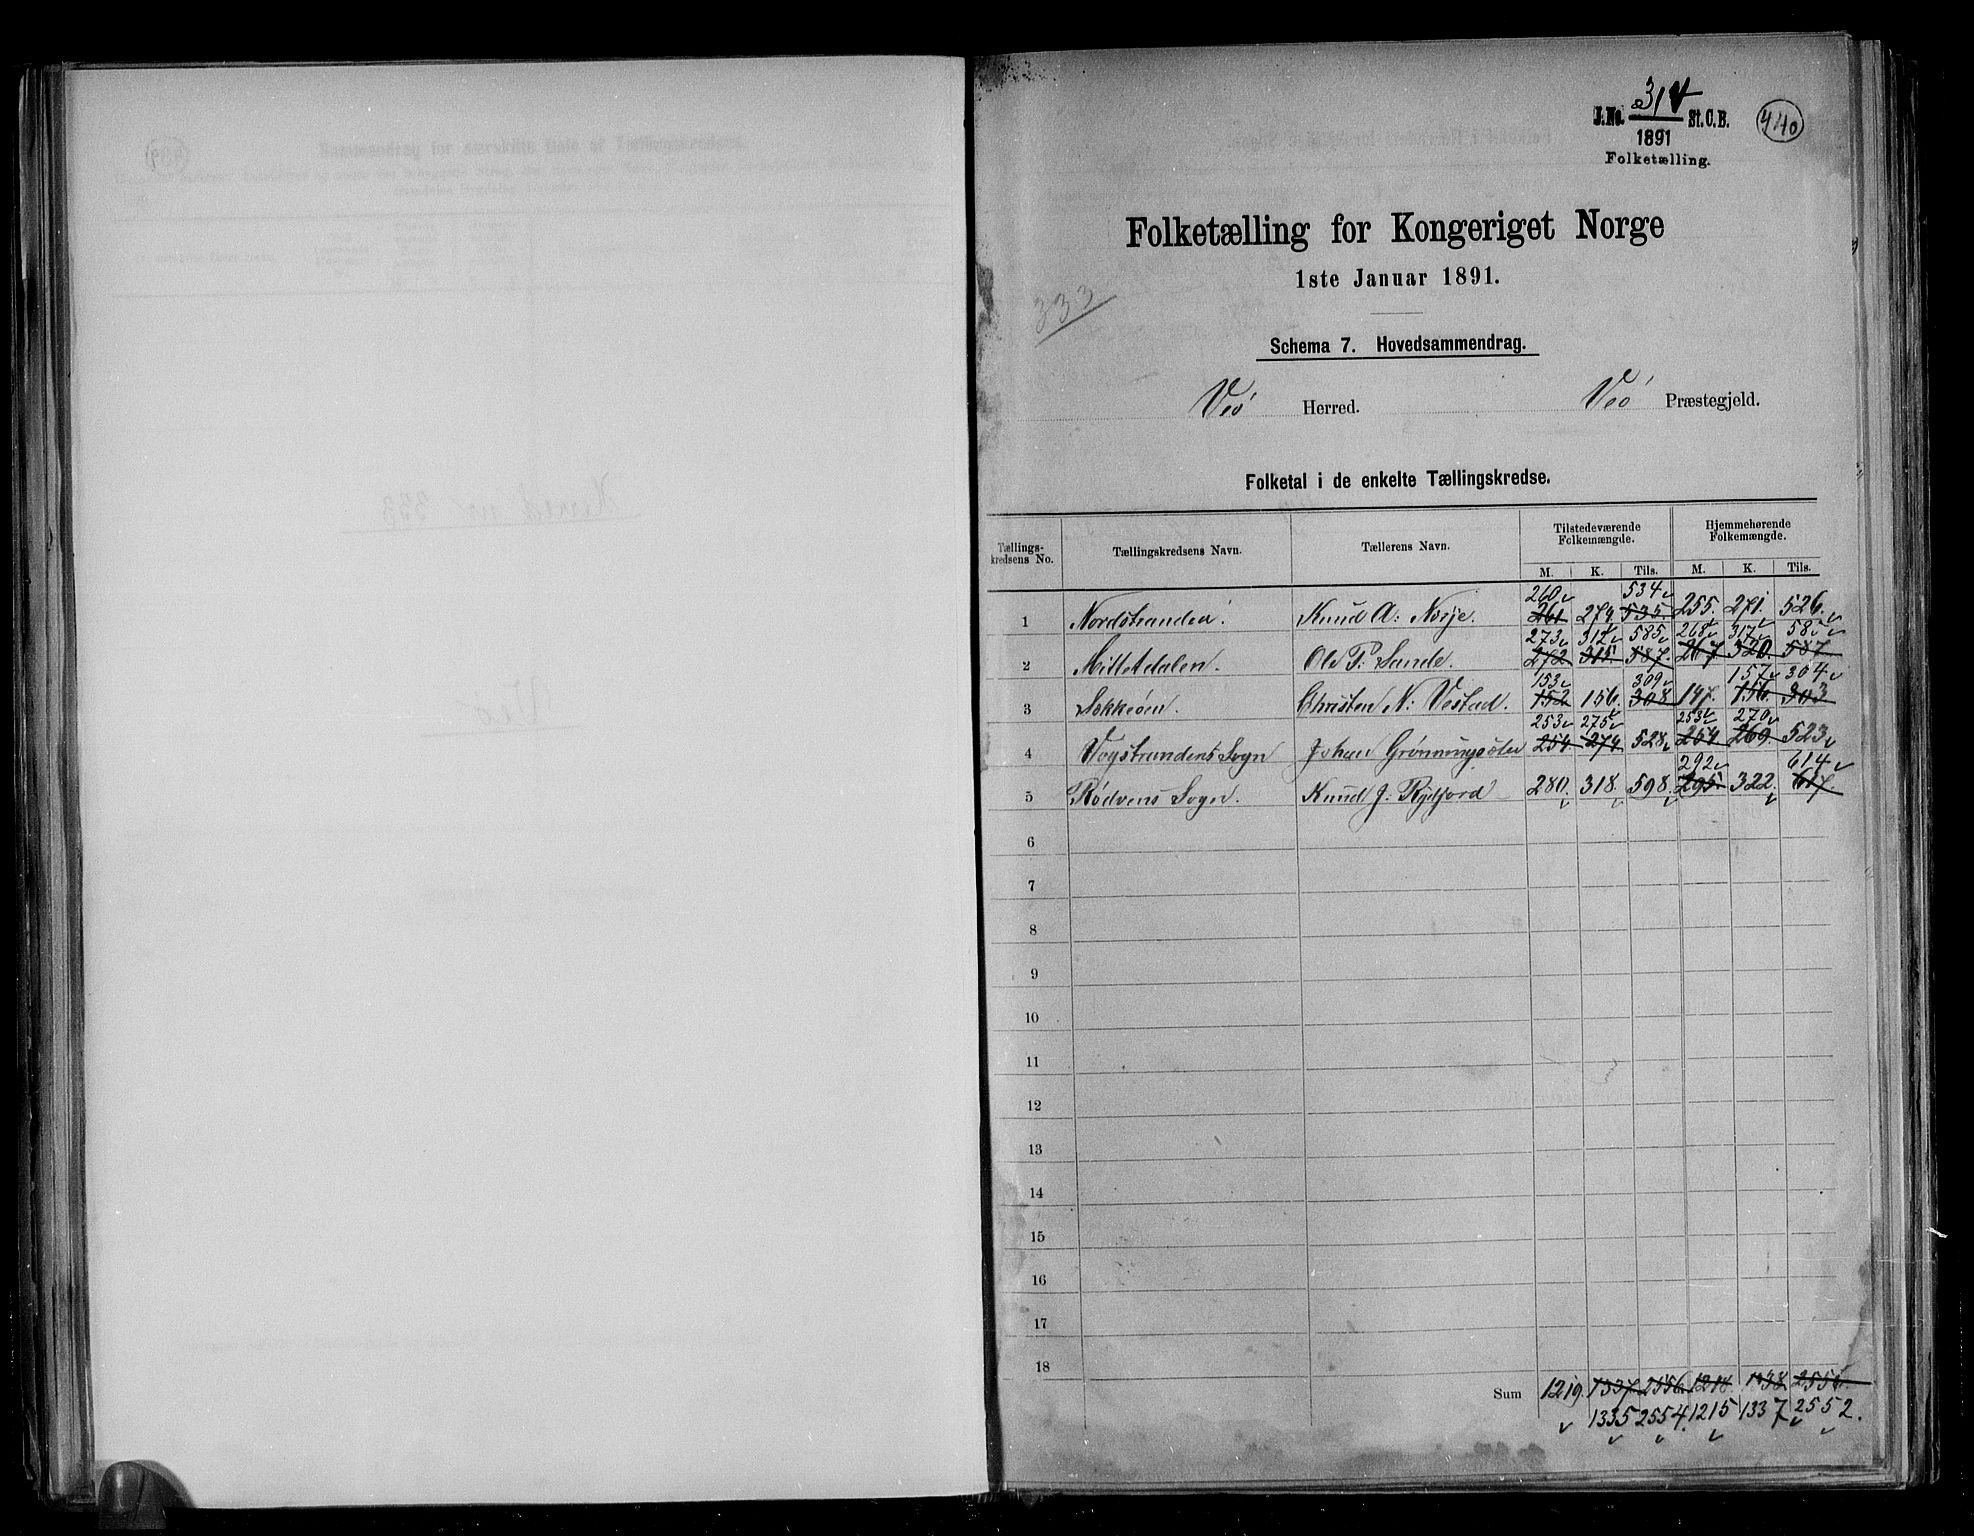 J.No. 314 St.C.B. 440
1891
Folketælling.
Folketælling for Kongeriget Norge
1ste Januar 1891.
333
Schema 7. Hovedsammendrag.
Veö Herred. Veö Præstegjeld.
Folketal i de enkelte Tællingskredse.
Tællings-kredsens No. Tællingskredsens Navn. Tællerens Navn. Tilstedeværende Folkemængde. Hjemmehørende Folkemængde.
M. K. Tils. M. K. Tils.
260 534
1 Nordstranden Knud A. Norje. 261 274 535 255. 271. 526.
273 312 585 268 317 585
2 Mittetdalen. Ole P. Sande. 272 315 587. 267 320 587
153 309 157 304
3 Sekkeöen. Christen N. Vestad. 152 156. 308 147. 156 303
253 275 253 270
4 Vogstrandens Sogn Johan Grönningsæter 254 274 528 254 269. 523
292 614
5 Rödvens Sogn. Knud J. Rydjord 280. 318. 598. 295 322. 617.
6
7
8
9
10
11
12
13
14
15
16
17
18
Sum 1219. 1337. 2556. 1218. 1338 2556.
1335 2554. 1215 1337 2552.